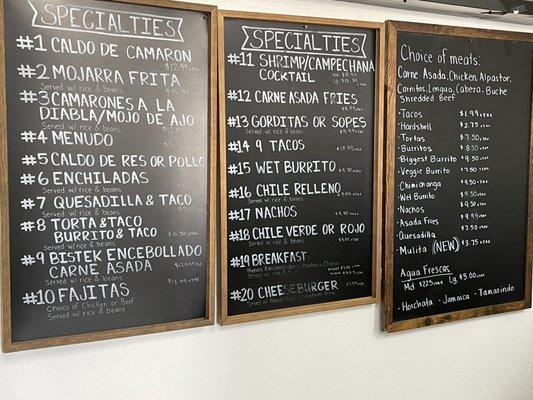 SPECIALTIES
#1 CALDO DE CAMARON
$12.99+TAX
#2 MOJARRA FRITA
Served w/ rice & beans $11.99+TAX
#3 CAMARONES A LA
DIABLA/MOJO DE AJO
Served w/ rice & beans $12.95
#4 MENUDO
#5 CALDO DE RES OR POLLO
#6 ENCHILADAS
Served w/ rice & beans
#7 QUESADILLA & TACO
Served w/ rice & beans
#8 TORTA & TACO
BURRITO & TACO $10.50+TAX
Served w/ rice & beans
#9 BISTEK ENCEBOLLADO
CARNE ASADA $12.99+TAX
Served w/ rice & beans
#10 FAJITAS
Choice of Chicken or Beef
Served w/ rice & beans $12.99+TAX
SPECIALTIES
#11 SHRIMP/CAMPECHANA
COCKTAIL
#12 CARNE ASADA FRIES
#13 GORDITAS OR SOPES
Served w/ rice & beans $9.99+TAX
#14 9 TACOS
#15 WET BURRITO
#16 CHILE RELLENO
Served w/ rice & beans
#17 NACHOS
#18 CHILE VERDE OR ROJO
Served w/ rice & beans
#19 BREAKFAST
Huevos Rancheros
Served w/ rice & beans
#20 CHEESEBURGER
Choice of meats:
Carne Asada, Chicken, Al pastor,
Carnitas, Lengua, Cabeza, Buche
Shredded Beef
· Tacos $1.99+TAX
· Hardshell $2.75+TAX
· Tortas $7.50+TAX
· Burritos $8.50+TAX
· Biggest Burrito $9.50+TAX
· Veggie Burrito $7.50+TAX
· Chimichanga $9.50+TAX
· Wet Burrito $9.50+TAX
· Nachos $9.50+TAX
· Asada Fries $9.99+TAX
· Quesadilla $7.50+TAX
· Mulita (NEW) $3.75+TAX
Agua Frescas
Md $2.75+TAX Lg $3.00+TAX
· Horchata · Jamaica · Tamarindo